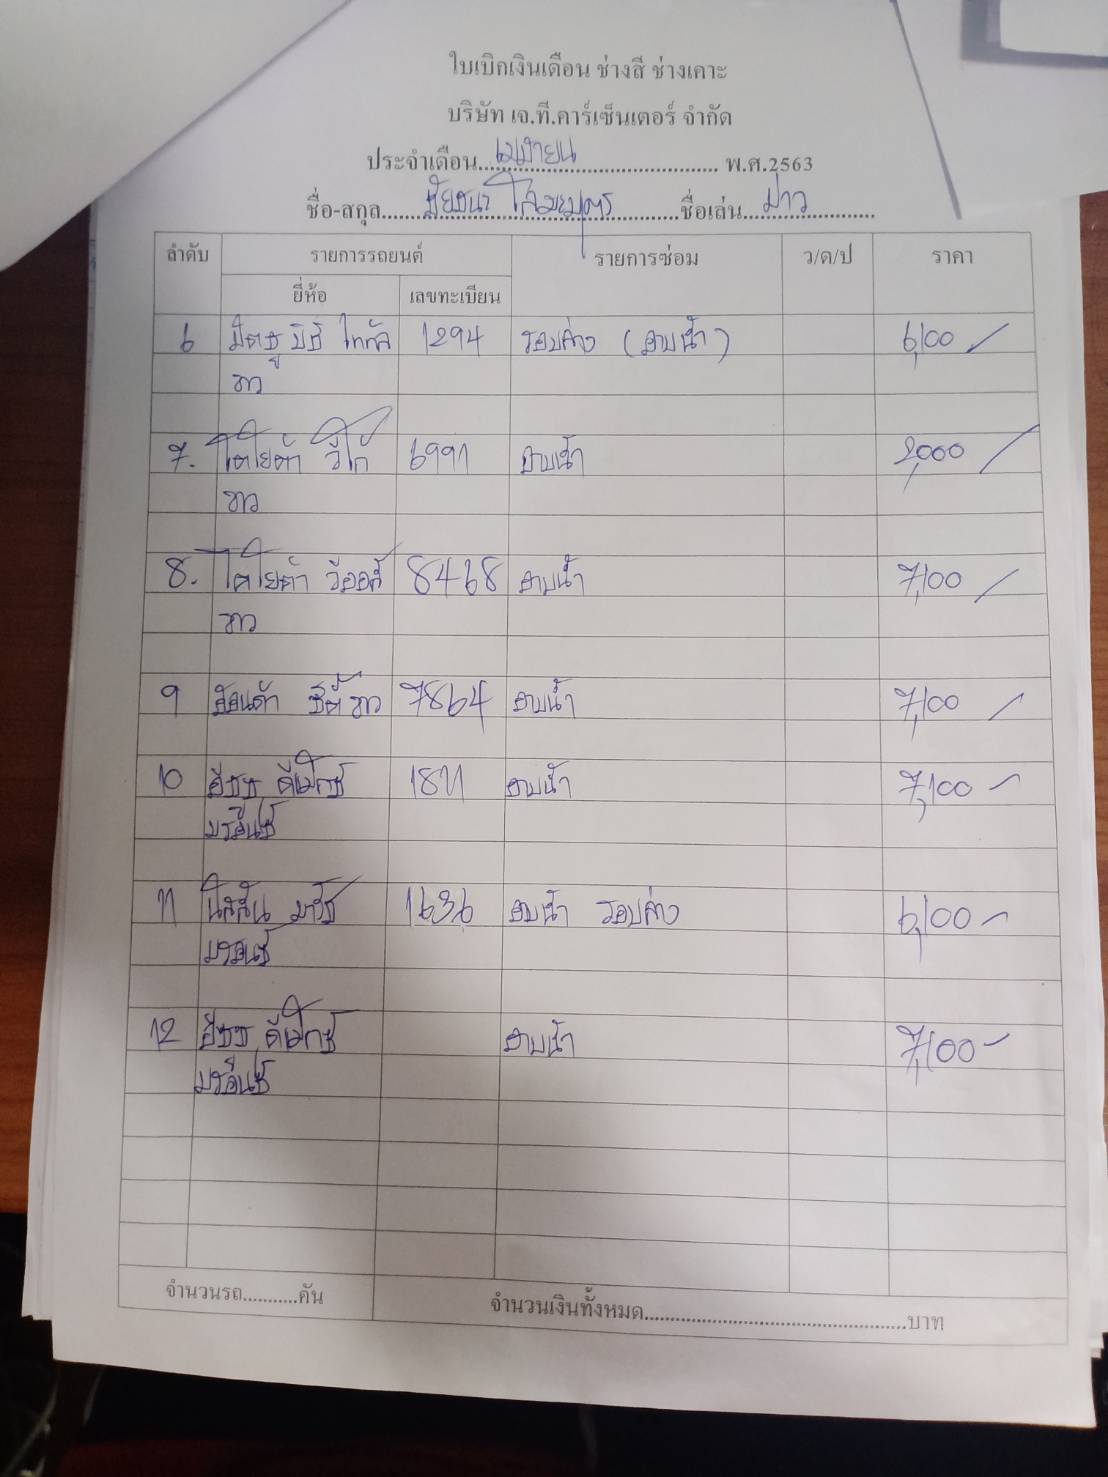 ใบเบิกเงินเดือน ช่างสี ช่างเคาะ
บริษัท เจ.ที.คาร์เซ็นเตอร์ จำกัด
ประจำเดือน...เมษายน... พ.ศ.2563
ชื่อ-สกุล... ...ชื่อเล่น...ป่าว...
ลำดับ รายการรถยนต์ รายการซ่อม ว/ด/ป ราคา
ยี่ห้อ เลขทะเบียน
6 มิตซูบิชิ ไททัล 1294 รอบค่าง (อาบน้ำ) 6,100
ขาว
7. โตโยต้า วีโก้ 6991 อาบน้ำ 2,000
ขาว
8. โตโยต้า วีออส์ 8468 อาบน้ำ 7,100
ขาว
9 ฮอนด้า ซิตี้ ขาว 7864 อาบน้ำ 7,100
10 อีซูซุ ดีแม็กซ์ 1811 อาบน้ำ 7,100
บรอนซ์
11 นิสสัน มาร์ช 1636 อาบน้ำ รอบค่าง 6,100
บรอนซ์
12 อีซูซุ ดีแม็กซ์ อาบน้ำ 7,100
บรอนซ์
จำนวนรถ...........คัน จำนวนเงินทั้งหมด..................................................บาท